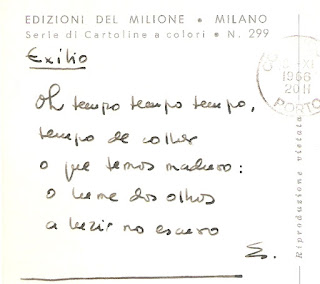 EDIZIONI DEL MILIONE • MILANO
Serie di Cartoline a colori • N. 299
Exilio
Oh tempo tempo tempo,
tempo de colher
o que temos maduro:
o lume dos olhos
a luzir no escuro
E.
1966
20H
PORTO
Riproduzione vietata